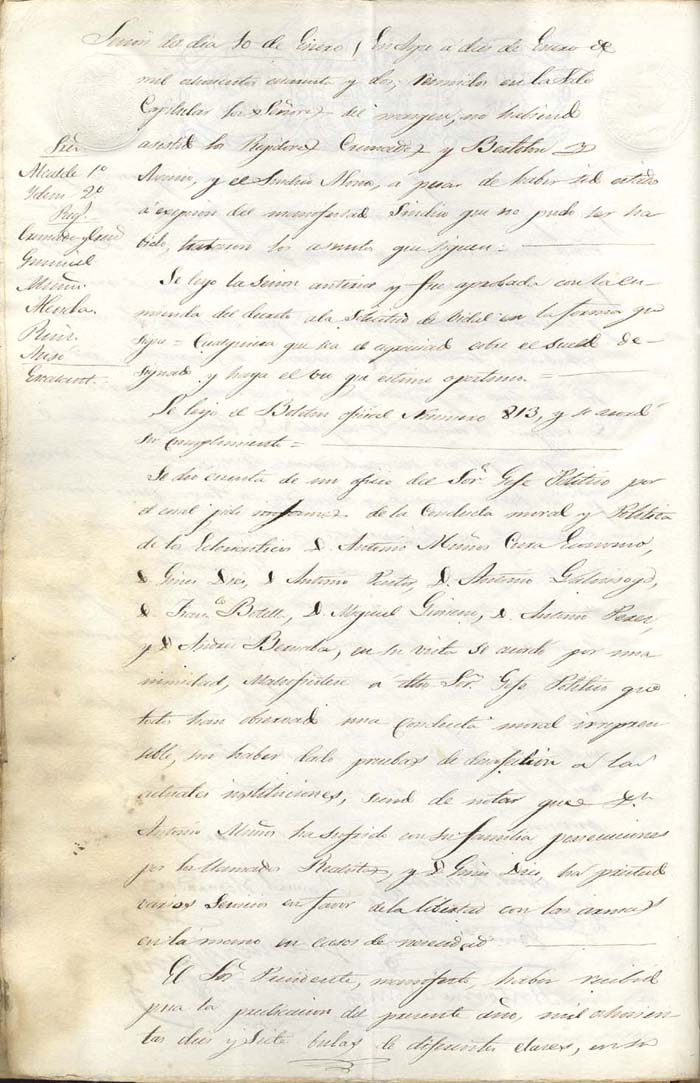 Sesion del dia 10 de Enero / En Aspe a dies de Enero de
mil ochocientos cuarenta y dos, reunidos en la Sala
Capitular los Señores del margen, no habiendo
asistido los Regidores Cremades y Berloton y
y el Sindico Mona, a pesar de haber sido citados
a ecepcion del manifestado Sindico que no pudo ser ha
bido, trataron los asuntos que siguen =
Sres.
Alcalde 1º
Idem 2º
Reg.
Cremades y
Gumiel
Muñoz
Ruiz
Se leyo la Sesion anterior y fue aprobada con la en-
mienda del decreto a la solicitud de Vidal en la forma que
sigue = Cualquiera que sea el espresado sobre el sueldo de-
signado y haga el uso que estime oportuno =
Se leyo el Boletin oficial Numero 813, y se acordó
su cumplimiento =
Se dio cuenta de un oficio del Sor. Gefe Politico por
el cual pide informes de la Conducta moral y Politica
de los Eclesiasticos D. Antonio Muños Cura Economo,
D. Gines Dies, D. Antonio Pastor, D. Antonio Galinsogo,
D. Franco. Botella, D. Miguel Gimeno, D. Antonio Perez,
y D Andres Bernabe, en su vista se acordó por una
nimidad, Manifestar a dho Sor. Gefe Politico que
todos han observado una Conducta moral irrepren
sible, sin haber dado pruebas de desafeccion a las
actuales instituciones, siendo de notar que Dn.
Antonio Muños ha sufrido con su familia persecuciones
por los llamados Realistas, y D. Gines Dies, ha prestado
varios Servicios en favor de la libertad con las armas
en la mano en casos de necesidad
El Sor. Presidente, manifestó, haber recibido
para la predicacion del presente año, mil ochocien
tas dies y siete bulas de diferentes clases, en su